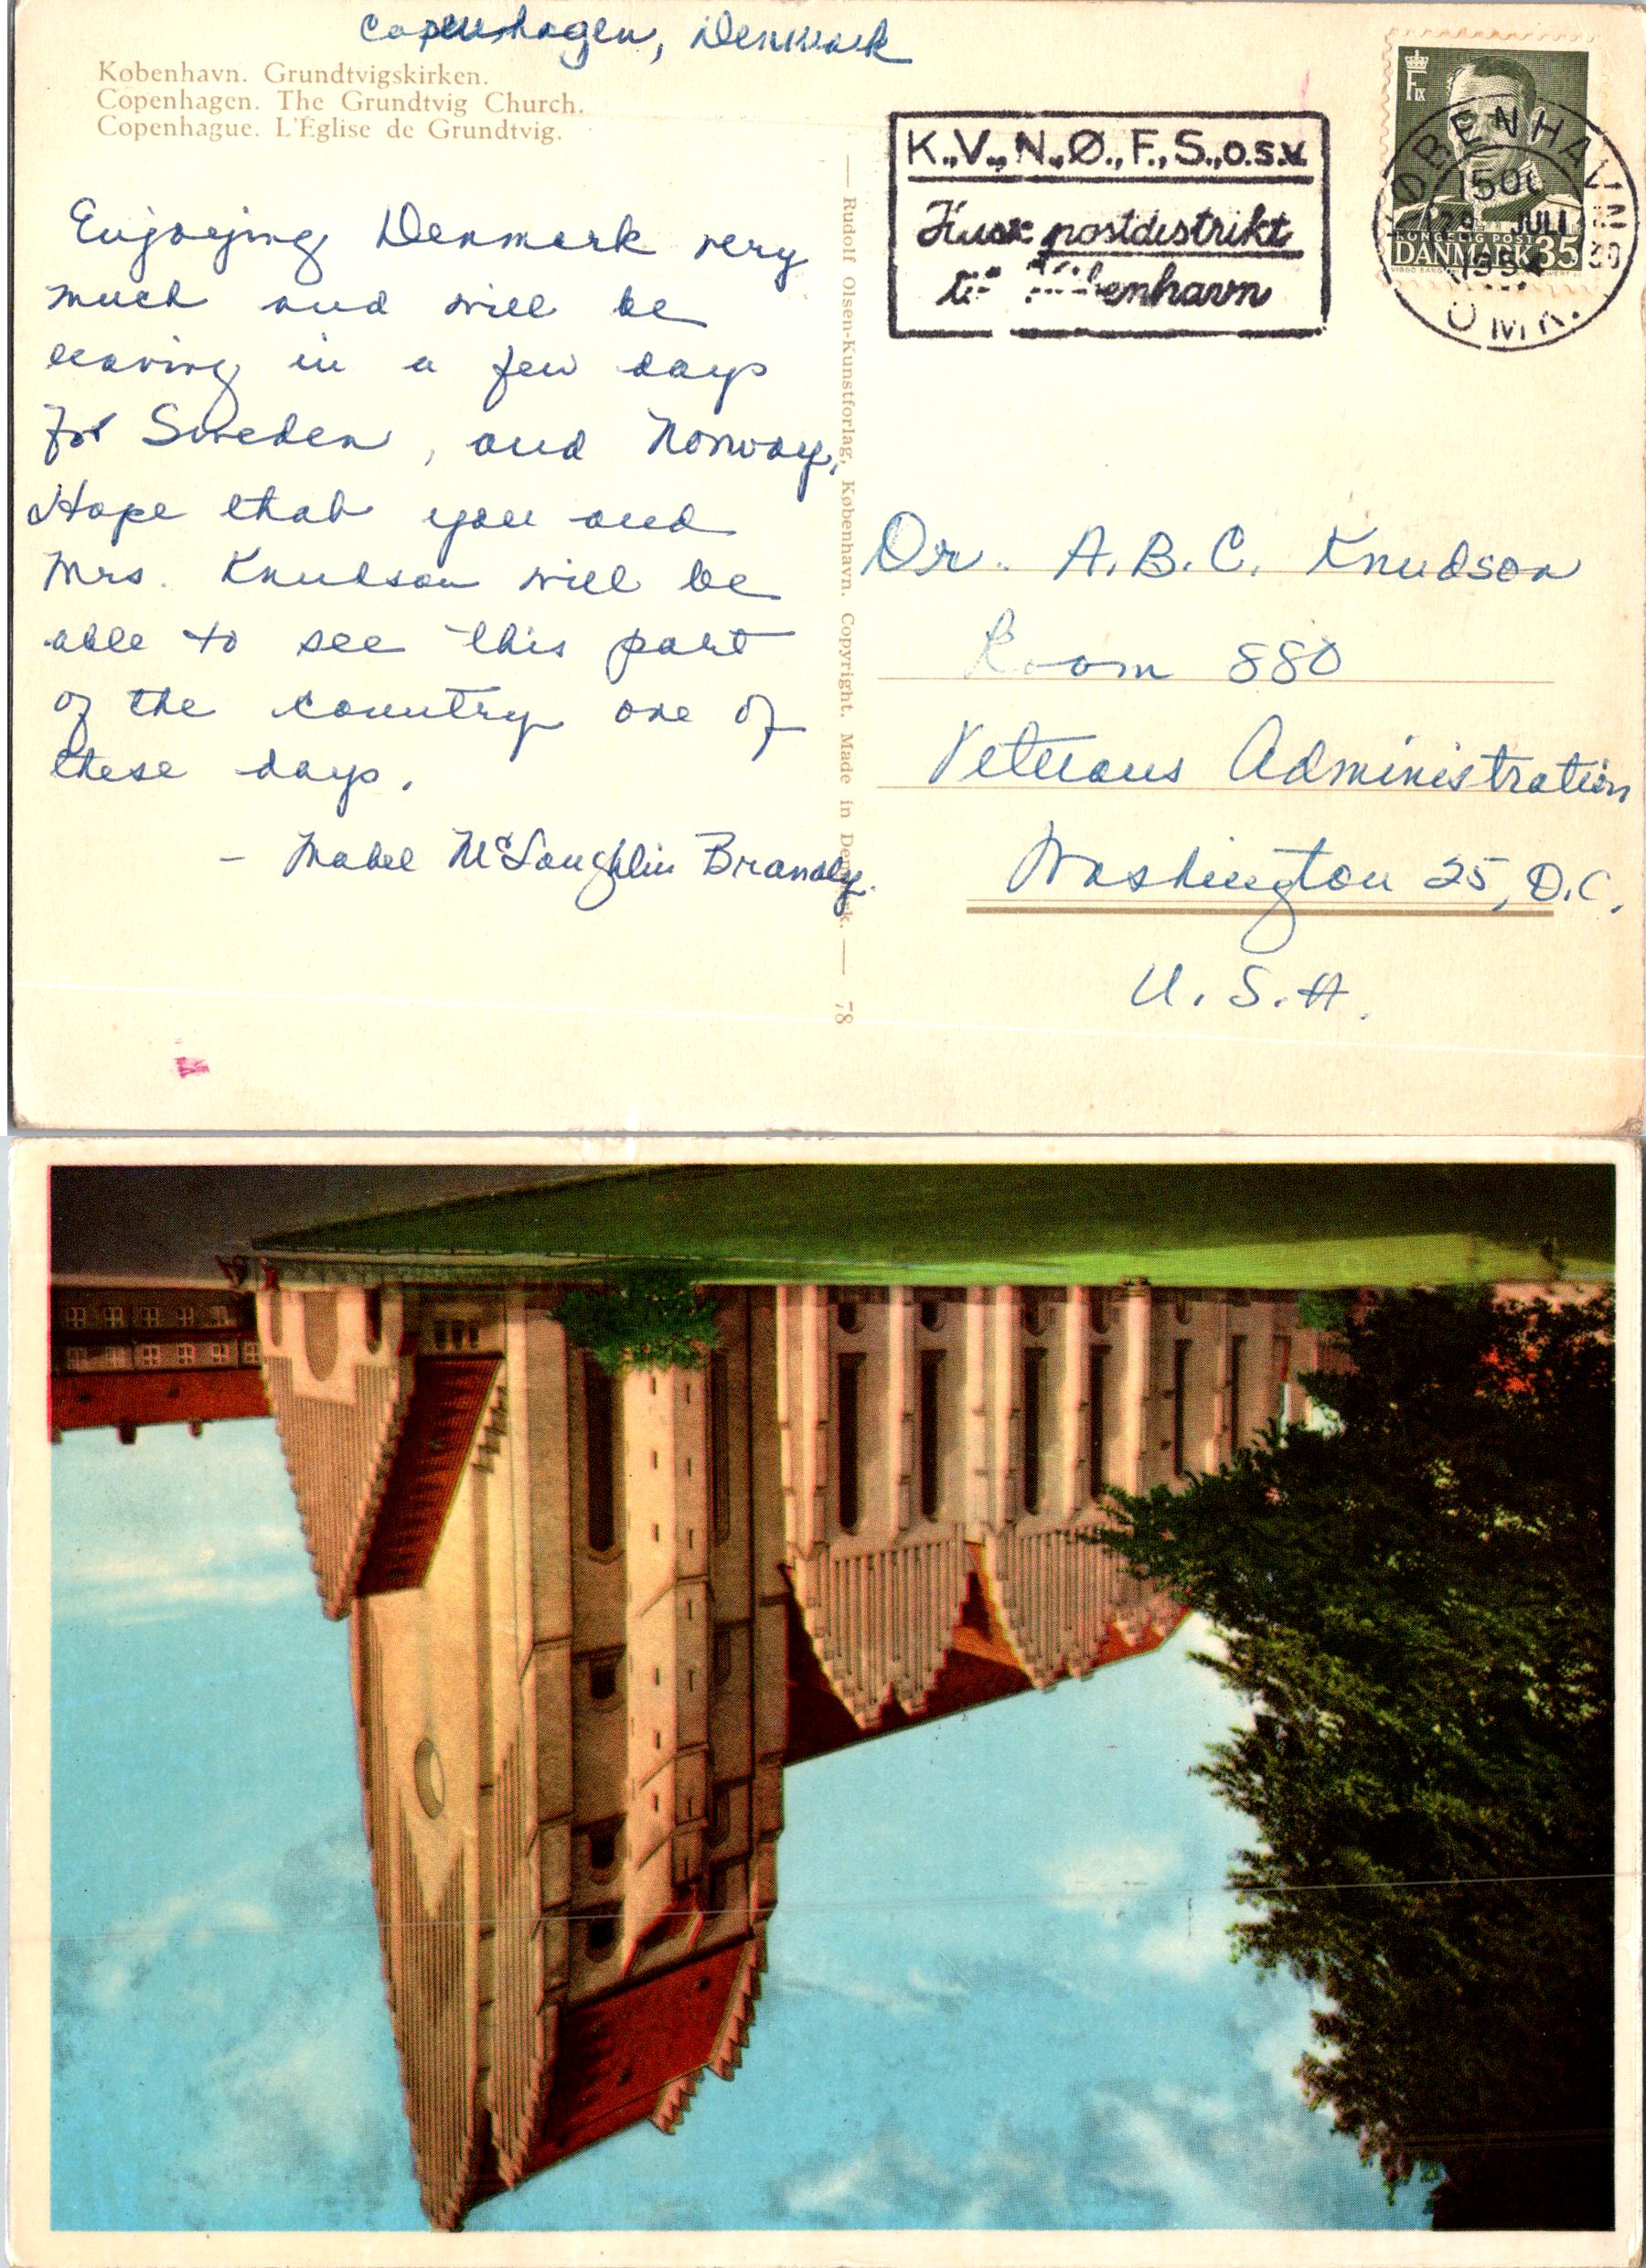 Copenhagen, Denmark
København. Grundtvigskirken.
Copenhagen. The Grundtvig Church.
Copenhague. L'Église de Grundtvig.
Enjoying Denmark very
much and will be
leaving in a few days
for Sweden, and Norway.
Hope that you and
Mrs. Knudson will be
able to see this part
of the country one of
these days.
- Mabel McLaughlin Brandly.
— Rudolf Olsen-Kunstforlag, København. Copyright. Made in Denmark. — 78
K., V., N., Ø., F., S., o.s.v.
Husk postdistrikt
til København
FIX
KONGELIG POST
DANMARK 35
KØBENHAVN
29 JULI
OMK.
Dr. A.B.C. Knudson
Room 880
Veterans Administration
Washington 25, D.C.
U.S.A.